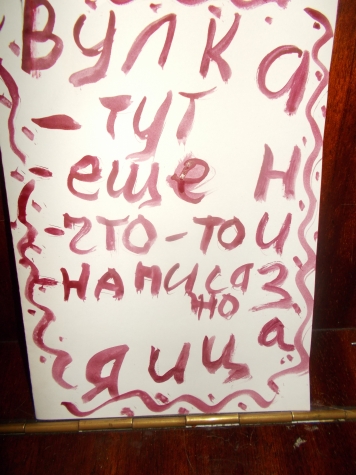 ВУЛКа
- ТУТ
еще Н
ЧТО-ТО И
НАПИСА З
НО
ЯИЦа